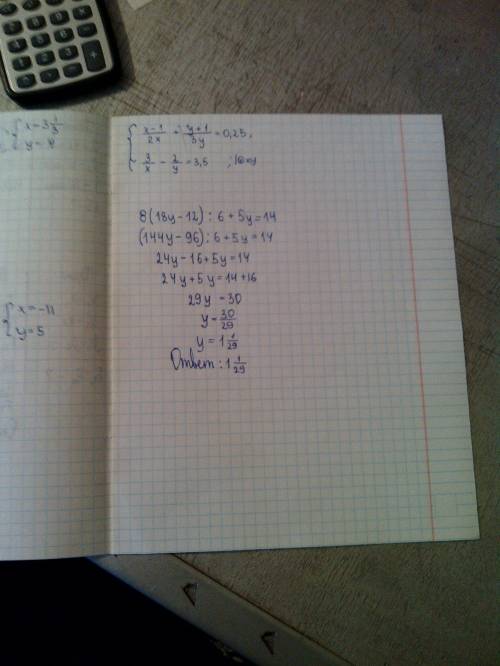 { x = 3 1/3
y = 4
{ x = -11
y = 5
{ (x-1)/2x = (y+1)/3y = 0,25;
3/x - 2/y = 3,5 ;
8(18y-12):6+5y=14
(144y-96):6+5y=14
24y-16+5y=14
24y+5y=14+16
29y=30
y=30/29
y=1 1/29
Ответ: 1 1/29